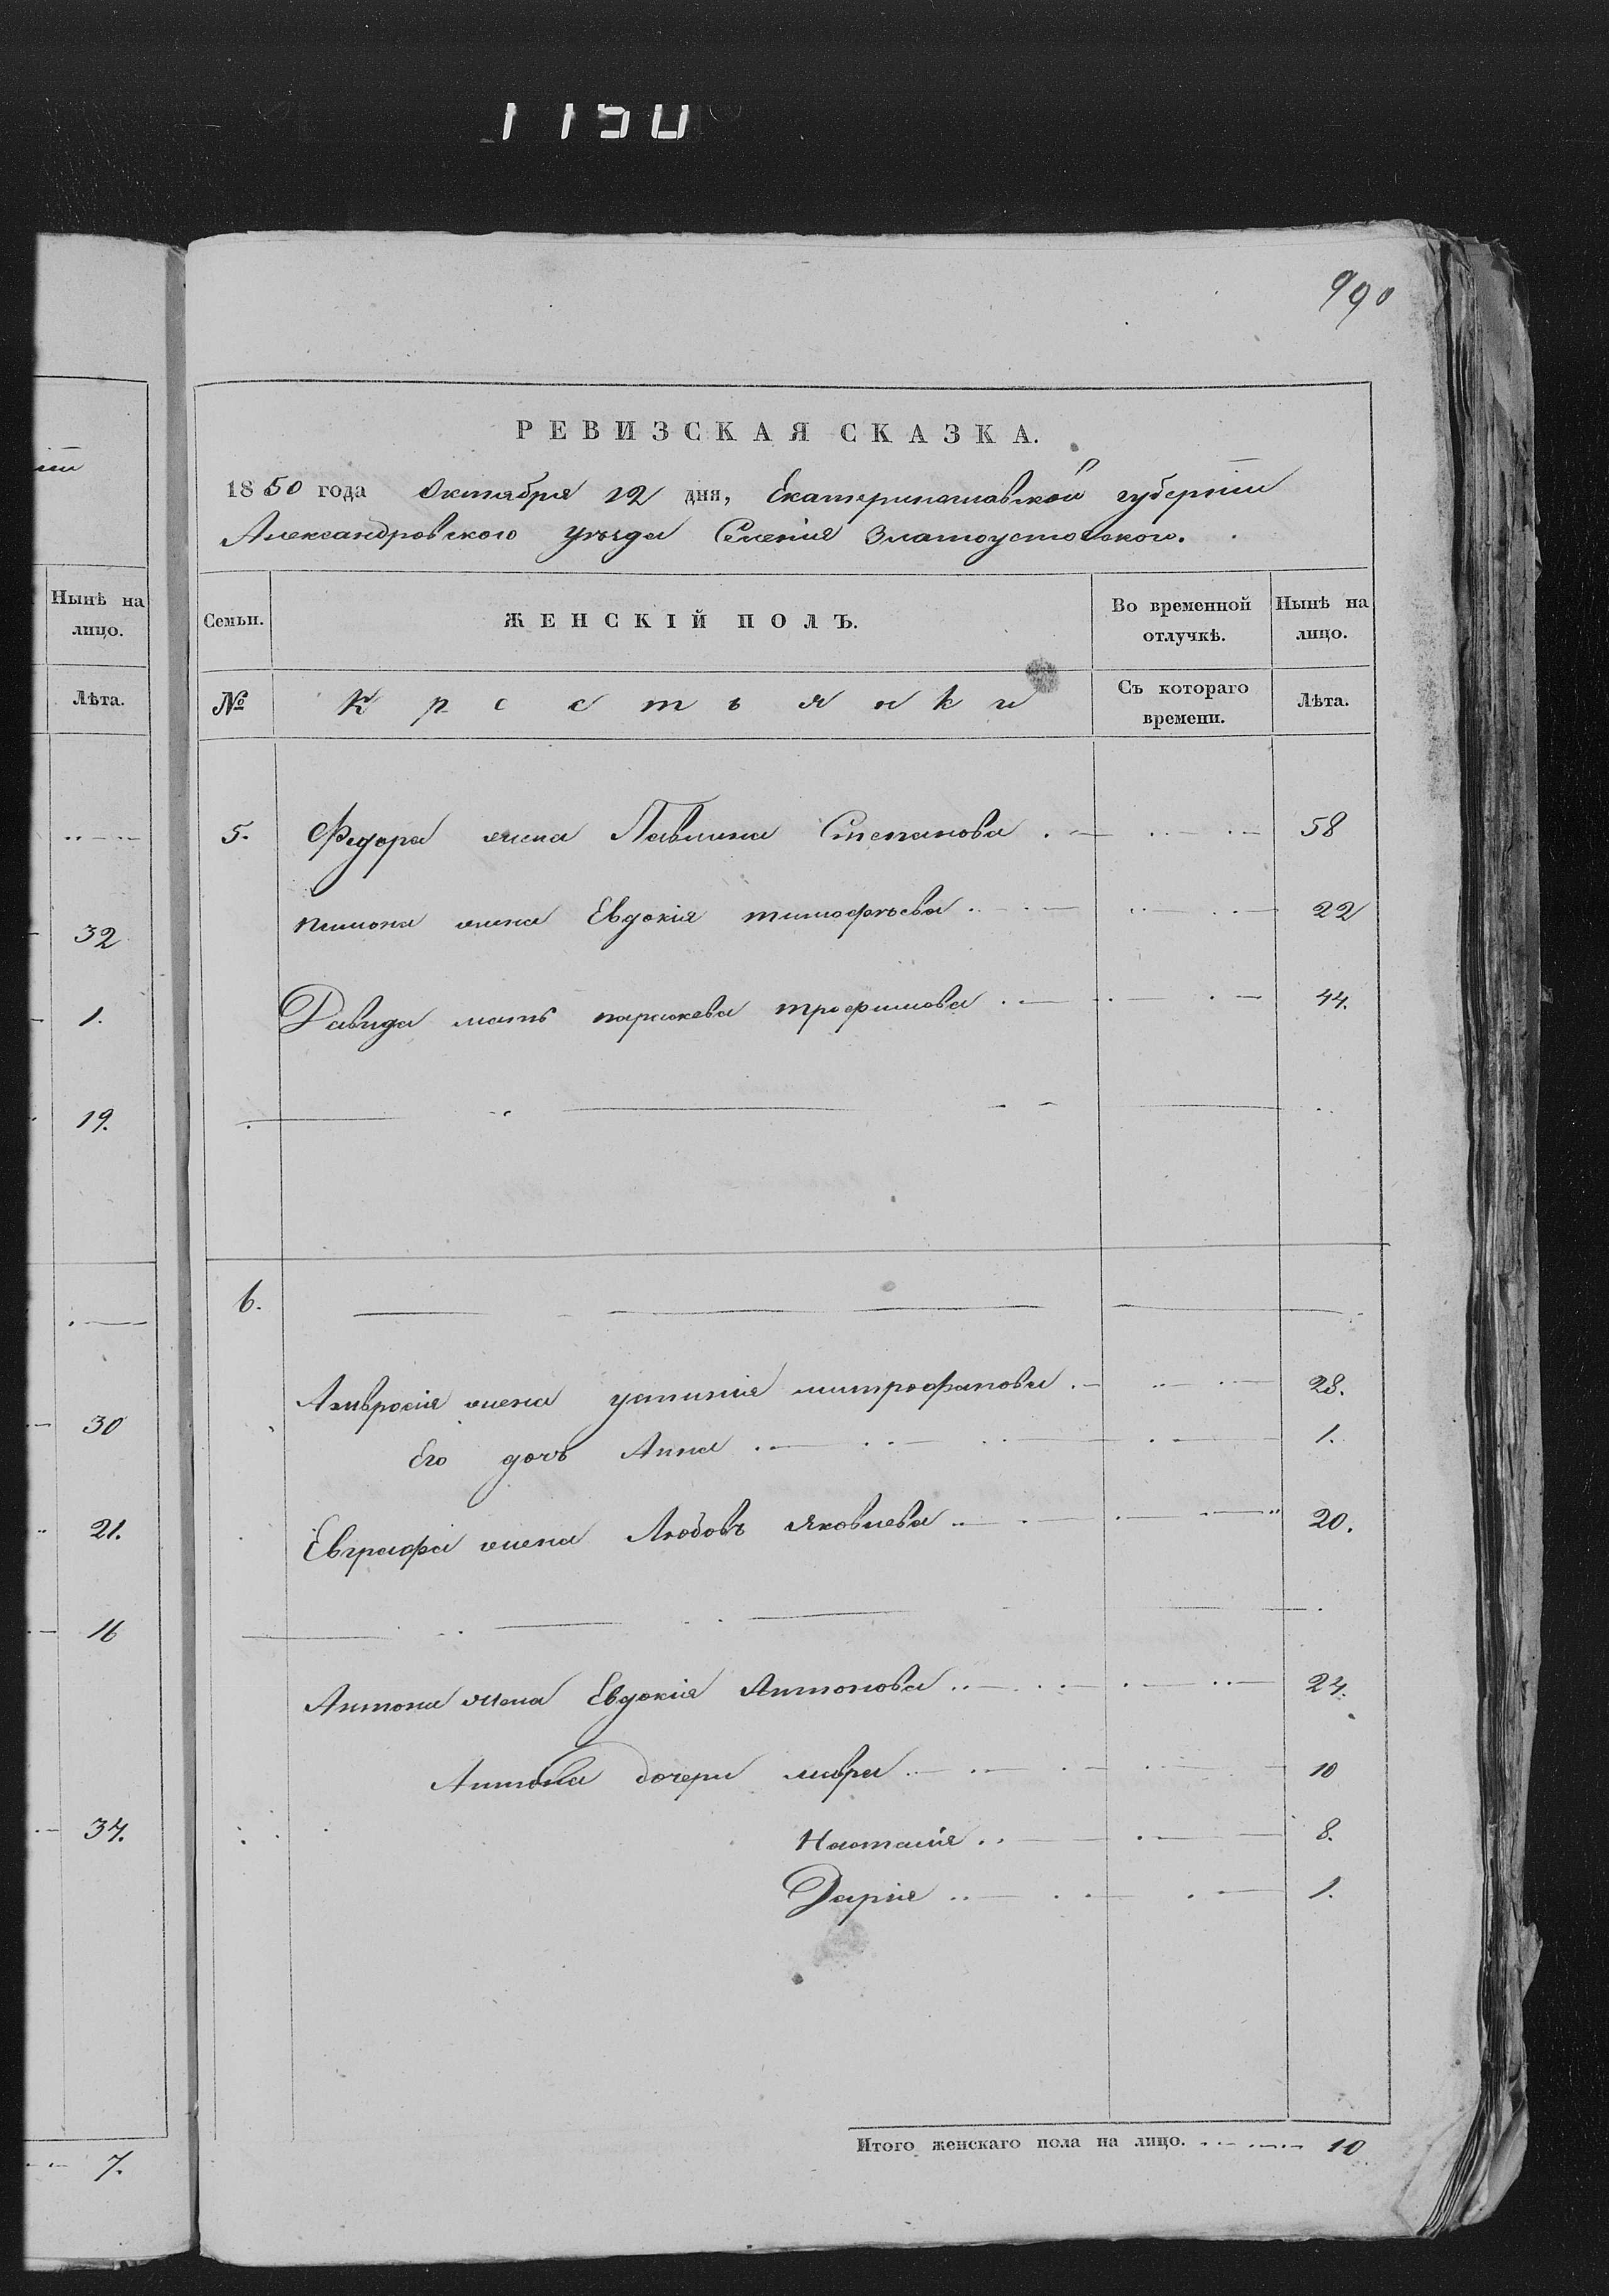 1150
990
іи
Нынѣ на
лицо.
Лѣта.
32
1.
19.
30
21.
16
34.
7.
РЕВИЗСКАЯ СКАЗКА.
1850 года Октября 12 дня, Екатеринославской губерніи
Александровскаго уѣзда Селенія Златоустовскаго.
Семьи. ЖЕНСКІЙ ПОЛЪ. Во временной отлучкѣ. Нынѣ на лицо.
№ Крестьянки Съ котораго времени. Лѣта.
5. Федора жена Павлина Степанова 58
пимона жена Евдокія тимофѣева 22
Давида мать параскева трофимова 44.
6.
Амвросія жена устинія митрофанова 28.
Его дочь Анна 1.
Евграфа жена Любовь Яковлева 20.
Антона жена Евдокія Антонова 24.
Антона дочери мавра 10
Наталія 8.
Дарія 1.
Итого женскаго пола на лицо. 10